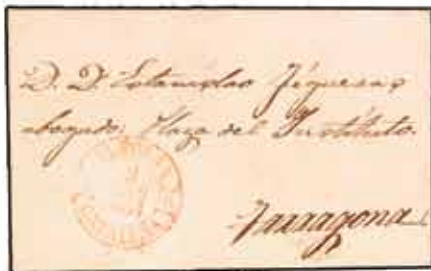 D. D. Estanislao Figueras
abogado. Plaza del Instituto.
Tarragona